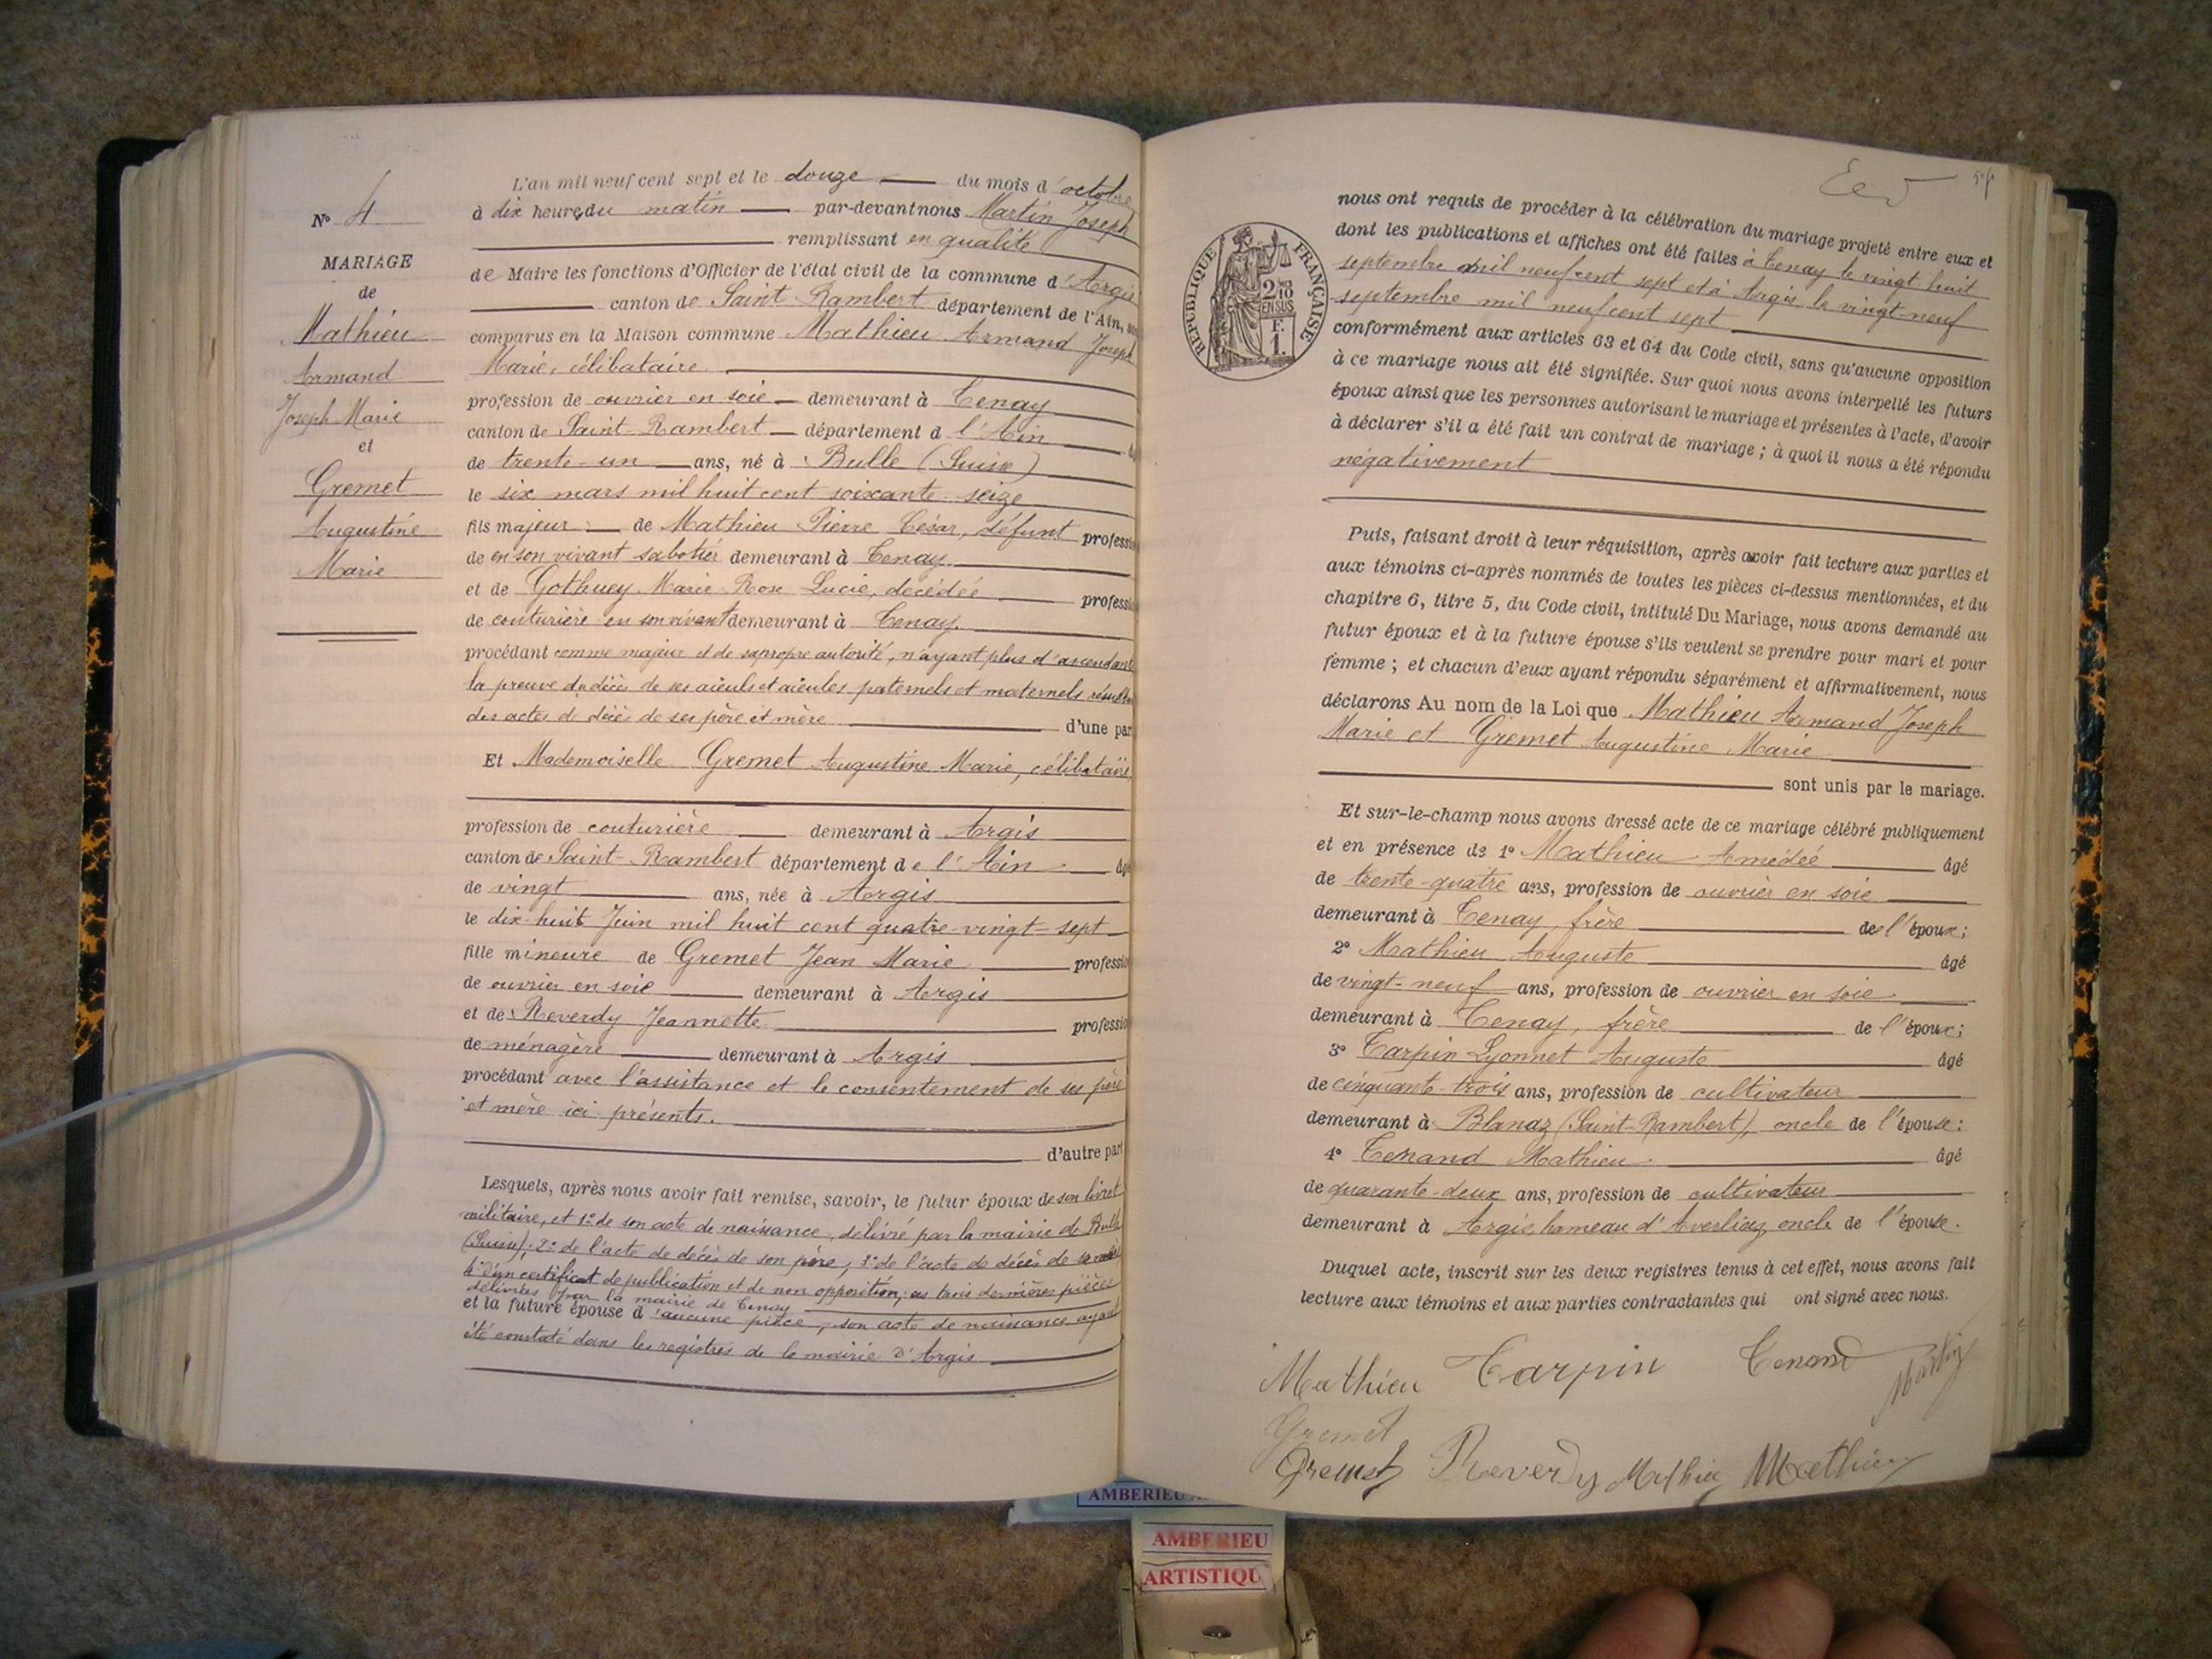 N° 4
MARIAGE
de
Mathieu
Armand
Joseph Marie
et
Gremet
Augustine
Marie
L'an mil neuf cent sept et le douze du mois d'octobre
à dix heures du matin par-devant nous Martin Joseph
remplissant en qualité
de Maire les fonctions d'Officier de l'état civil de la commune d'Argis
canton de Saint-Rambert département de l'Ain,
comparus en la Maison commune Mathieu Armand Joseph
Marie, célibataire
profession de ouvrier en soie demeurant à Tenay
canton de Saint-Rambert département d l'Ain
de trente-un ans, né à Bulle (Suisse)
le six mars mil huit cent soixante-seize
fils majeur : de Mathieu Pierre César, défunt professi
de en son vivant sabotier demeurant à Tenay
et de Gothuey Marie Rose Lucie, décédée professi
de couturière en son vivant demeurant à Tenay
procédant comme majeur et de sa propre autorité, n'ayant plus d'ascendants
la preuve du décès de ses aïeuls et aïeules paternels et maternels résulte
des actes de décès de ses père et mère d'une par
Et Mademoiselle Gremet Augustine Marie, célibataire
profession de couturière demeurant à Argis
canton de Saint-Rambert département de l'Ain âg
de vingt ans, née à Argis
le dix-huit Juin mil huit cent quatre-vingt-sept
fille mineure de Gremet Jean Marie professi
de ouvrier en soie demeurant à Argis
et de Reverdy Jeannette professi
de ménagère demeurant à Argis
procédant avec l'assistance et le consentement de ses père
et mère ici présents.
d'autre part
Lesquels, après nous avoir fait remise, savoir, le futur époux de son livret
militaire, et 1° de son acte de naissance, délivré par la mairie de Bulle
(Suisse); 2° de l'acte de décès de son père; 3° de l'acte de décès de sa mère
4° d'un certificat de publication et de non opposition; ces trois dernières pièces
délivrées par la mairie de Tenay
et la future épouse d'aucune pièce, son acte de naissance ayant
été constaté dans les registres de la mairie d'Argis
RÉPUBLIQUE FRANÇAISE
2/10
EN SUS
F.
1.
nous ont requis de procéder à la célébration du mariage projeté entre eux et
dont les publications et affiches ont été faites à Tenay le vingt huit
septembre mil neuf cent sept et à Argis le vingt-neuf
septembre mil neuf cent sept
conformément aux articles 63 et 64 du Code civil, sans qu'aucune opposition
à ce mariage nous ait été signifiée. Sur quoi nous avons interpellé les futurs
époux ainsi que les personnes autorisant le mariage et présentes à l'acte, d'avoir
à déclarer s'il a été fait un contrat de mariage ; à quoi il nous a été répondu
négativement
Puis, faisant droit à leur réquisition, après avoir fait lecture aux parties et
aux témoins ci-après nommés de toutes les pièces ci-dessus mentionnées, et du
chapitre 6, titre 5, du Code civil, intitulé Du Mariage, nous avons demandé au
futur époux et à la future épouse s'ils veulent se prendre pour mari et pour
femme ; et chacun d'eux ayant répondu séparément et affirmativement, nous
déclarons Au nom de la Loi que Mathieu Armand Joseph
Marie et Gremet Augustine Marie
sont unis par le mariage.
Et sur-le-champ nous avons dressé acte de ce mariage célébré publiquement
et en présence de 1° Mathieu Amédée âgé
de trente-quatre ans, profession de ouvrier en soie
demeurant à Tenay, frère de l'époux;
2° Mathieu Auguste âgé
de vingt-neuf ans, profession de ouvrier en soie
demeurant à Tenay, frère de l'époux;
3° Tarpin Lyonnet Auguste âgé
de cinquante-trois ans, profession de cultivateur
demeurant à Blanaz (Saint-Rambert), oncle de l'épouse;
4° Tenand Mathieu âgé
de quarante-deux ans, profession de cultivateur
demeurant à Argis, hameau d'Averliaz oncle de l'épouse.
Duquel acte, inscrit sur les deux registres tenus à cet effet, nous avons fait
lecture aux témoins et aux parties contractantes qui ont signé avec nous.
Mathieu Tarpin Tenand Martin
Gremet
Gremet Reverdy Mathieu Mathieu
AMBERIEU
AMBERIEU
ARTISTIQU